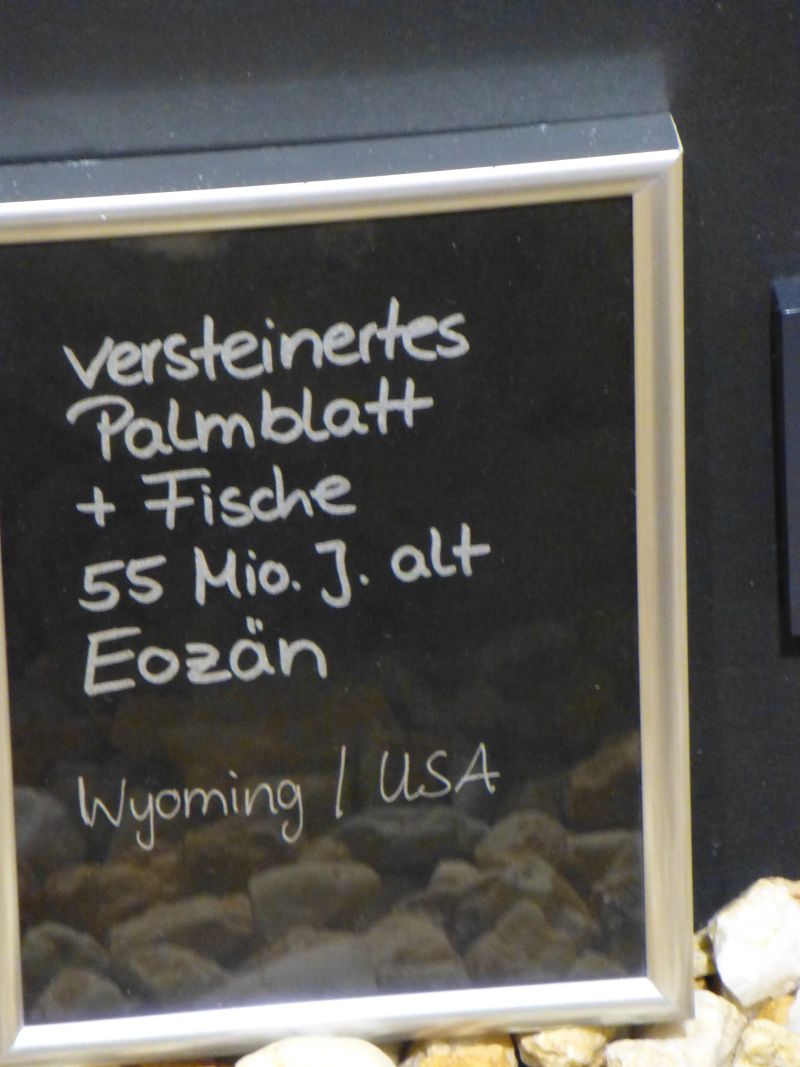 versteinertes
Palmblatt
+ Fische
55 Mio. J. alt
Eozän
Wyoming / USA